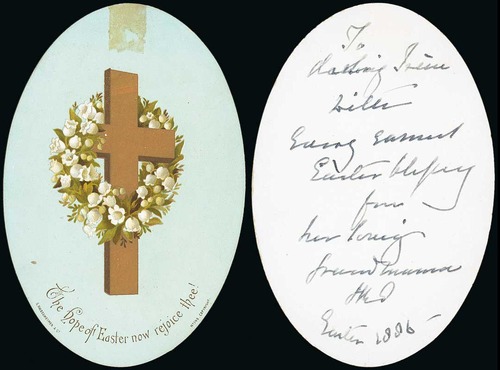 The hope of Easter now rejoice thee!
To
darling Irène
with
Every earnest
Easter blessing
from
her loving
Grandmama
Easter 1886